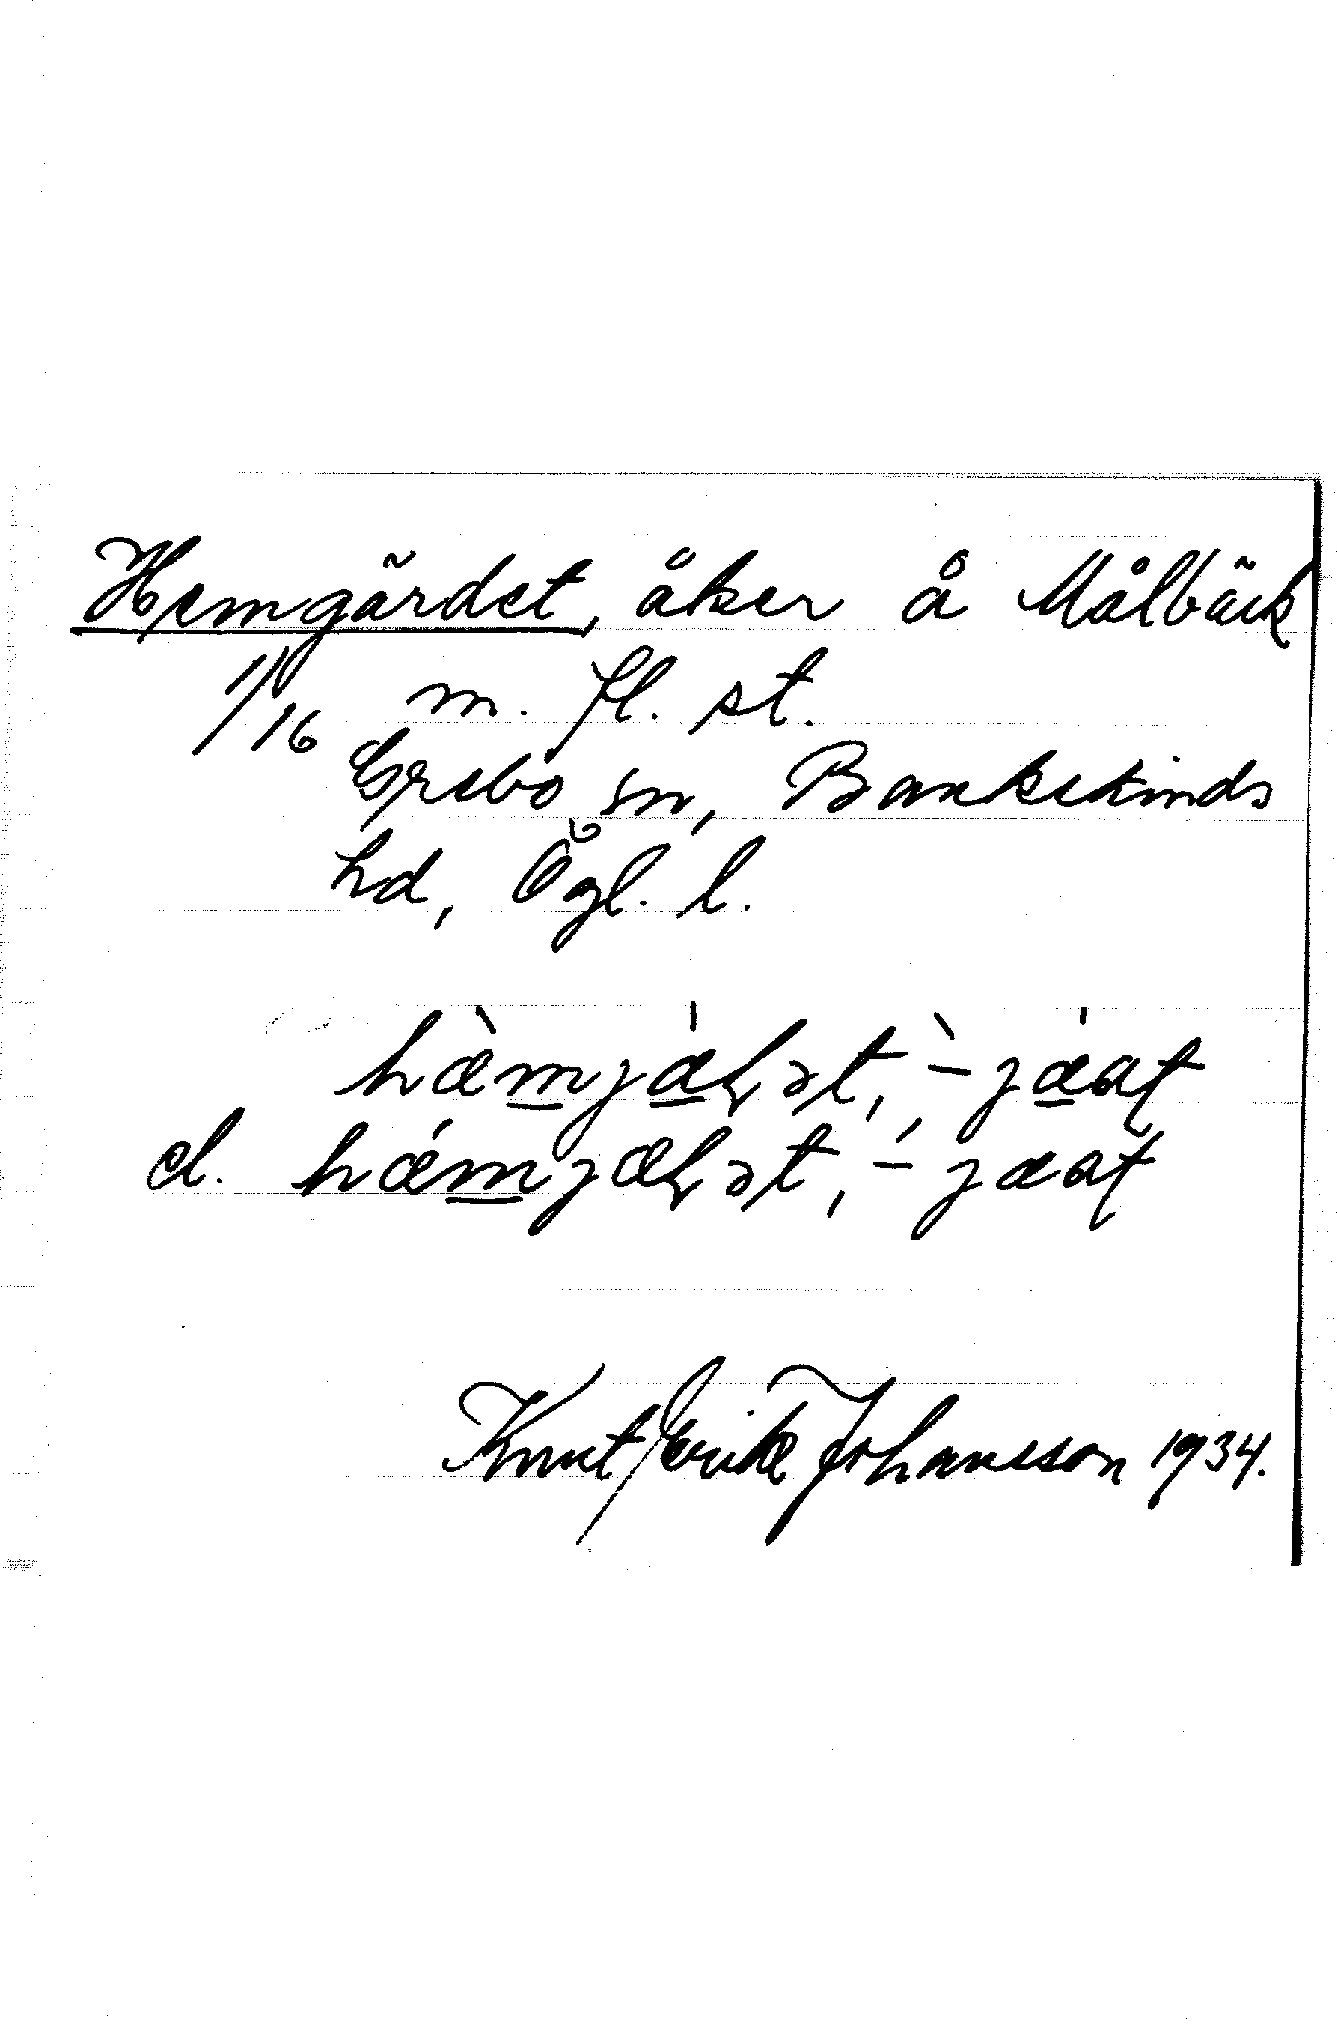 Hemgärdet, åker å Målbäck
1/16 m. fl. st.
Grebo sn, Bankekinds
hd, Ögl. l.
el.
Knut Erik Johansson 1934.